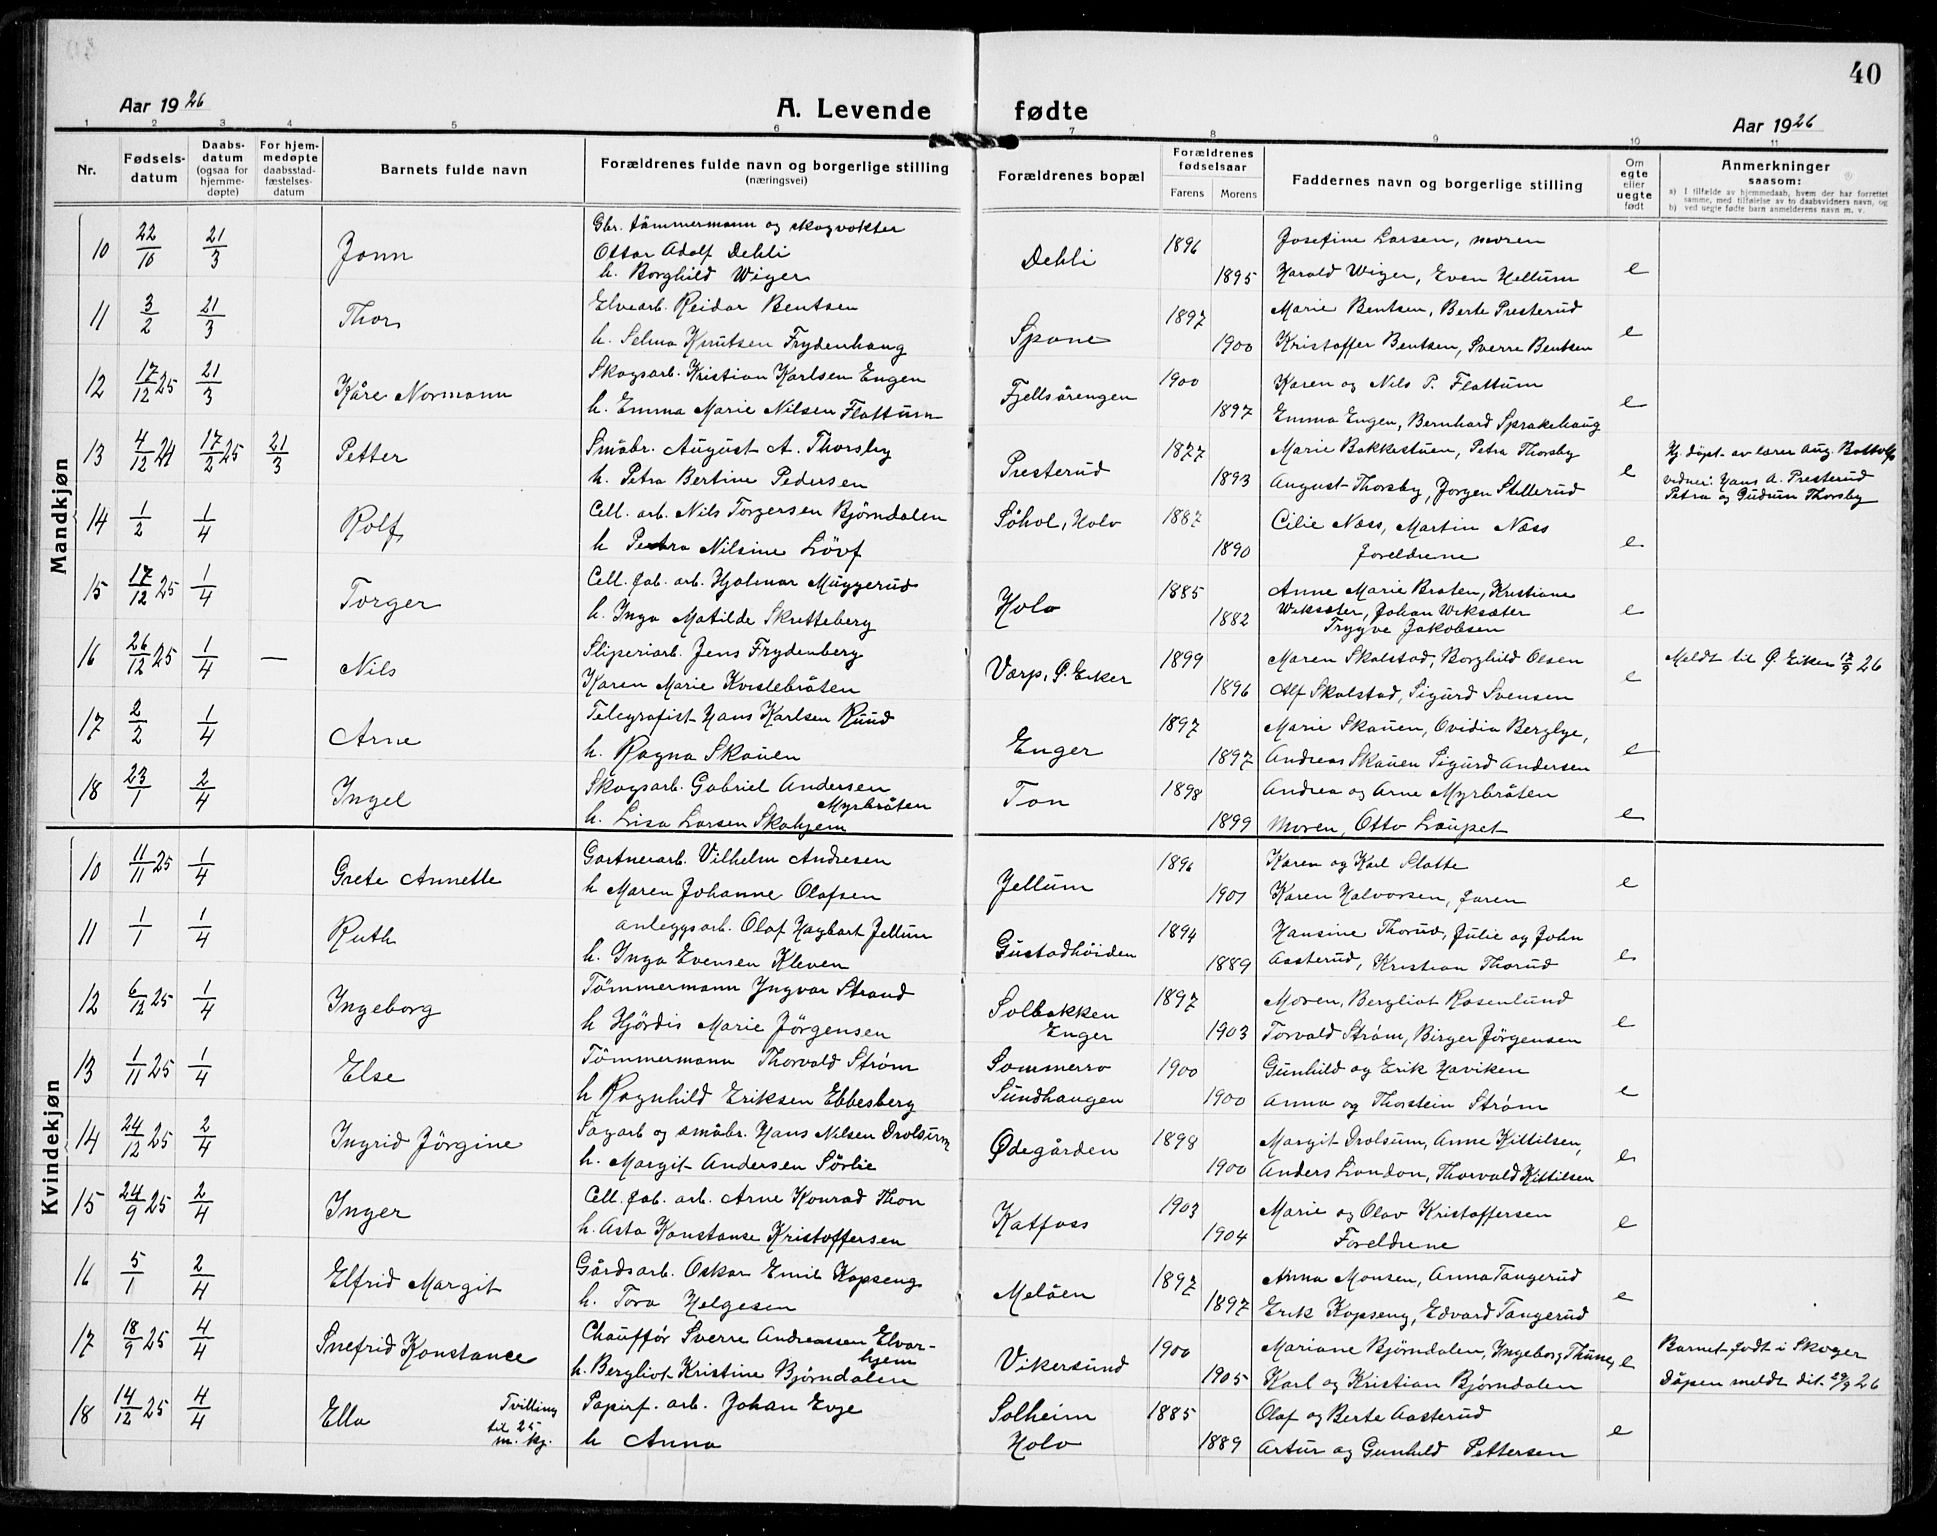 40
Aar 1926
A. Levende fødte
Aar 1926
1 2 3 4 5 6 7 8 9 10 11
Nr.
Fødsels-
datum
Daabs-
datum
(ogsaa for
hjemme-
døpte)
For hjem-
medøpte
daabsstad-
fæstelses-
datum
Barnets fulde navn
Forældrenes fulde navn og borgerlige stilling
(næringsvei)
Forældrenes bopæl
Forældrenes
fødselsaar
Farens Morens
Faddernes navn og borgerlige stilling
Om
egte
eller
uegte
født
Anmerkninger
saasom:
a) I tilfælde av hjemmedaab, hvem der har forrettet
samme, med tilføielse av to daabsvidners navn, og
b) ved uegte fødte barn anmelderens navn m. v.
Mandkjøn
10 22/10 21/3 Jonn
Gbr. tømmermann og skogvokter
Ottar Adolf Dehli
h. Borghild Wiger
Dehli 1896 1895
Josefine Larsen, moren
Harald Wiger, Even Hellum
e
11 3/2 21/3 Thor
Elvearb. Reidar Bentsen
h. Selma Knutsen Frydenhaug
Spone 1897 1900
Marie Bentsen, Berte Presterud
Kristoffer Bentsen, Sverre Bentsen
e
12 17/12 25 21/3 Kåre Normann
Skogsarb. Kristian Karlsen Engen
h. Emma Marie Nilsen Flattum
Fjellsårengen 1900 1897
Karen og Nils P. Flattum
Emma Engen, Bernhard Sprakehaug
e
13 4/12 24 17/2 25 21/3 Petter
Småbr. August A. Thorsby
h. Petra Bertine Pedersen
Presterud 1877 1893
Marie Bakkestuen, Petra Thorsby
August Thorsby, Jorgen Stellerud
e
Hj. døpt av lærer Aug. Bottolfs
vidner: Hans A. Presterud
Petra og Gudrun Thorsby
14 1/2 1/4 Rolf
Cell. arb. Nils Torgersen Bjørndalen
h Petra Nilsine Løvf
Søhol, Holo 1887 1890
Cilie Næss, Martin Næss
foreldrene
e
15 17/12 25 1/4 Torger
Cell. fab. arb. Hjalmar Muggerud
h. Inga Matilde Skretteberg
Holo 1885 1882
Anne Marie Braten, Kristiane
Weksæter, Johan Weksæter
Trygve Jakobsen
e
16 26/12 25 1/4 — Nils
Sliperiarb. Jens Frydenberg
Karen Marie Kvistebråten
Varp, Ø. Eiker 1899 1896
Maren Skalstad, Borghild Olsen
Alf Skalstad, Sigurd Svensen
e
Meldt til Ø. Eiker 17/9 26
17 2/2 1/4 Arne
Telegrafist Hans Karlsen Ruud
h. Ragna Skauen
Enger 1897 1897
Marie Skauen, Ovidia Berglye,
Andreas Skauen Sigurd Andersen
e
18 23/1 2/4 Ingel
Skogsarb. Gabriel Andersen
Myrbråten
h. Lisa Larsen Skahjem
Ton 1898 1899
Andrea og Arne Myrbråten
Moren, Otto Laupet
e
Kvindekjøn
10 11/11 25 1/4 Grete Annette
Gartnerarb. Vilhelm Andresen
h Maren Johanne Olafsen
Jellum 1896 1901
Karen og Karl Slatte
Karen Halvorsen, faren
e
11 1/1 1/4 Ruth
anleggsarb. Olaf Hagbart Jellum
h. Inga Evensen Kleven
Gustadhöiden 1894 1889
Hansine Thorud, Julie og John
Aasterud, Kristian Thorud
e
12 6/12 25 1/4 Ingeborg
Tömmermann Yngvar Strand
h Hjördis Marie Jörgensen
Solbakken
Enger 1897 1903
Moren, Bergliot Rosenlund
Torvald Strøm, Birger Jörgensen
e
13 1/11 25 1/4 Else
Tömmermann Thorvald Strøm
h Ragnhild Eriksen Ebbesberg
Sommerro
Sundhaugen 1900 1900
Gunhild og Erik Haviken
Anna og Thorstein Strøm
e
14 24/12 25 2/4 Ingrid Jörgine
Sagarb og småbr. Hans Nilsen Drolsum
h. Margit Andersen Sörlie
Ødegården 1898 1900
Margit Drolsum, Anne Kittilsen,
Anders London, Thorvald Kittilsen
e
15 24/9 25 2/4 Inger
Cell. fab. arb. Arne Konrad Thon
h. Asta Konstanse Kristoffersen
Katfoss 1903 1904
Marie og Olav Kristoffersen
Foreldrene
e
16 5/1 2/4 Elfrid Margit
Gårdsarb. Oskar Emil Kopseng
h. Tora Helgesen
Meløen 1897 1897
Anna Monsen, Anna Tangerud
Erik Kopseng, Edvard Tangerud
e
17 18/9 25 4/4 Snefrid Konstance
Chauffør Sverre Andreassen Elvar-
hjem
h. Bergliot Kristine Bjørndalen
Vikersund 1900 1905
Mariane Bjørndalen, Ingeborg Thune,
Karl og Kristian Bjørndalen
e
Barnet født i Skoger
Dåpen meldt dit 29/9 26
18 14/12 25 4/4 Ella
Tvilling
til 25
m. kj.
Papirf. arb. Johan Evje
h Anna
Solheim
Holo 1885 1889
Olaf og Berte Aasterud
Artur og Gunhild Pettersen
e